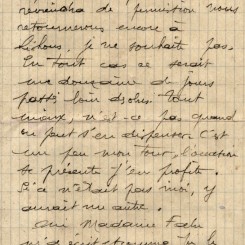 reviendra de permission nous
retournerons encore à
je ne souhaite pas.
En tout cas ce serait
une douzaine de jours
passés loin d'obus. Tant
mieux, n'est-ce pas quand
on peut s'en dispenser. C'est
un peu mon tour, l'occasion
se présente j'en profite.
Si ce n'était pas moi, y
aurait un autre.
Oui Madame
m'a écrit